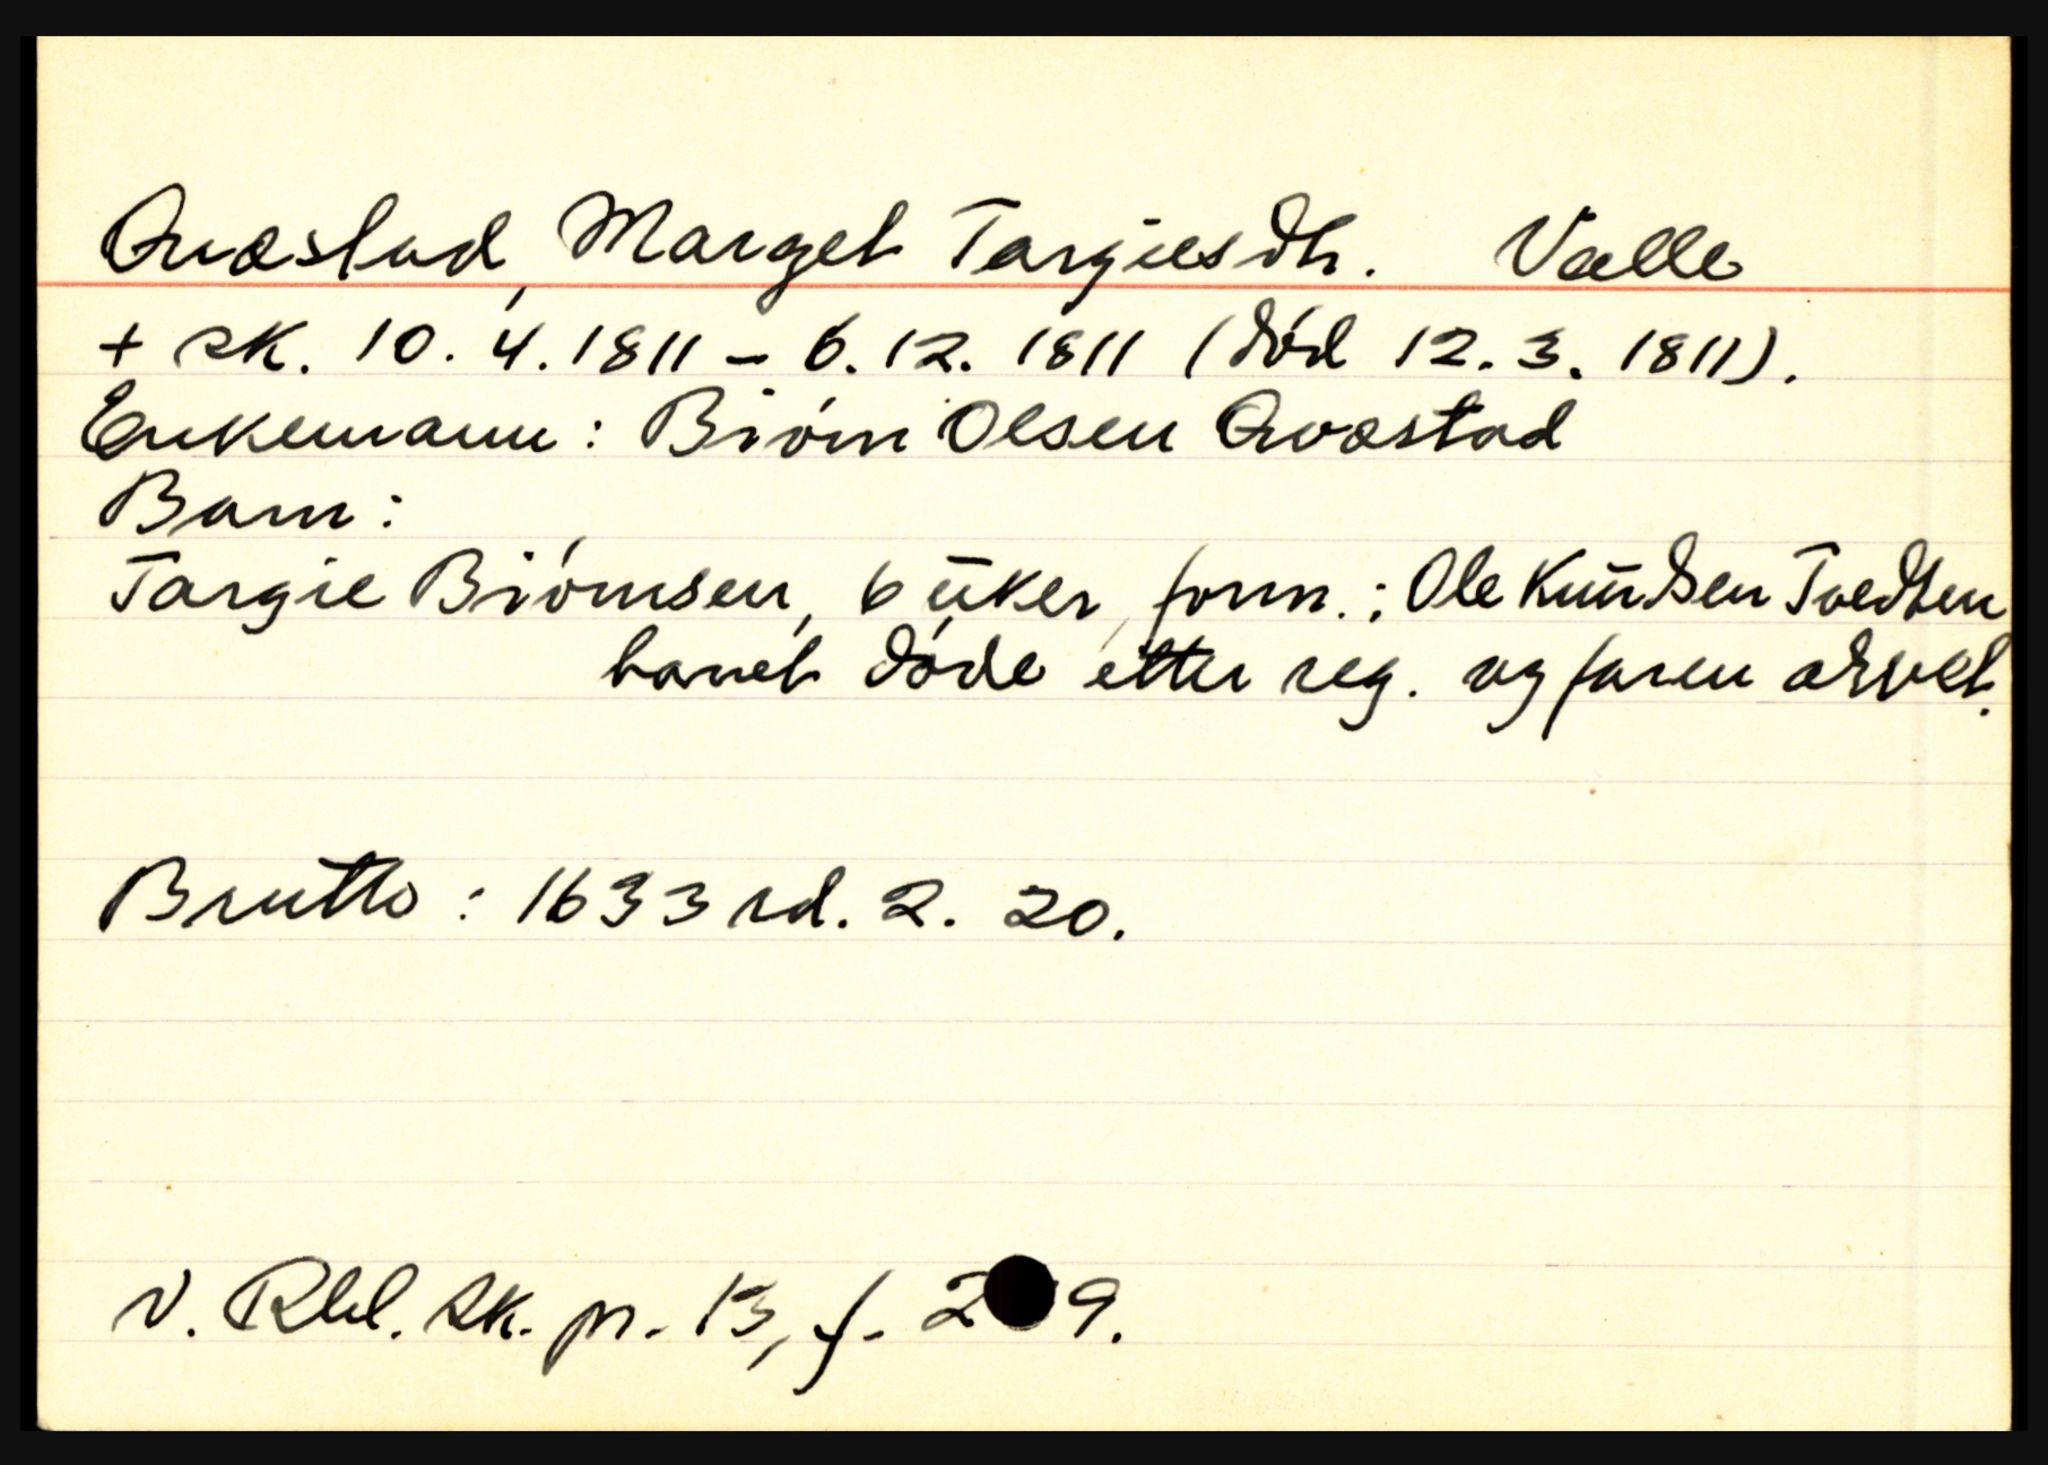 Qvæstad, Marget Targiesdtr. Valle
+ sk. 10. 4. 1811 - 6. 12. 1811 (død 12. 3. 1811).
Enkemann: Biørn Olsen Qvæstad
Barn:
Targie Biørnsen, 6 uker, form.: Ole Knudsen Tvedten
barnet døde etter reg. og faren arvet.
Brutto: 1633 rd. 2. 20.
V. Rbd. sk. pr. 13, f. 2 9.